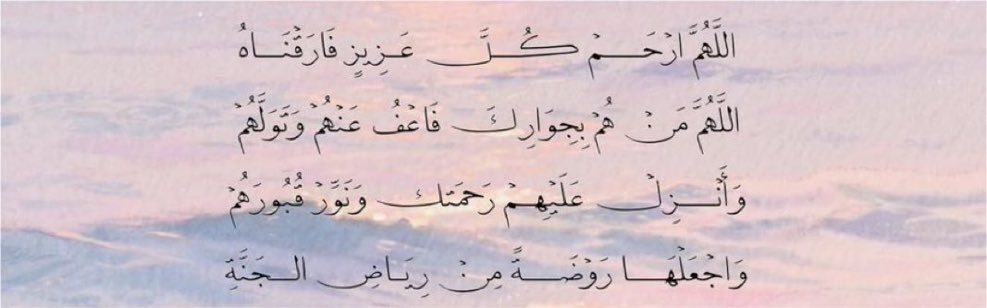 اللَّهُمَّ ارْحَمْ كُلَّ عَزِيزٍ فَارَقْنَاهُ
اللَّهُمَّ مَنْ هُمْ بِجِوَارِكَ فَاعْفُ عَنْهُمْ وَتَوَلَّهُمْ
وَأَنْزِلْ عَلَيْهِمْ رَحْمَتَك وَنَوَّرْ قُبُورَهُمْ
وَاجْعَلْهَا رَوْضَةً مِنْ رِيَاضِ الْجَنَّةِ